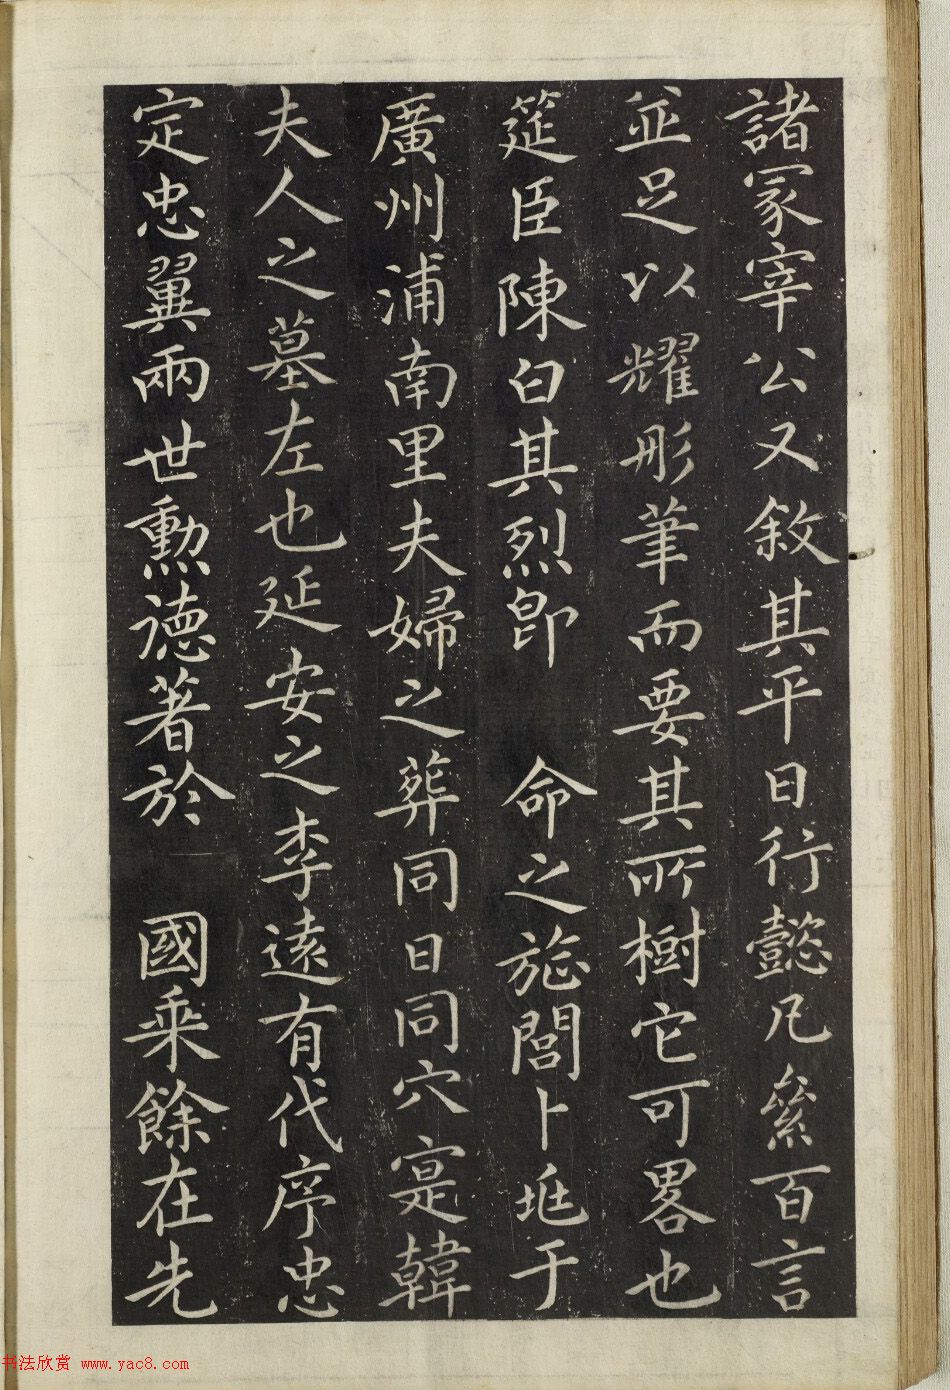 諸冢宰公又敘其平日行懿凡絫百言
並足以耀彤筆而要其所樹它可畧也
筵臣陳白其烈即 命之旌閭卜兆于
廣州浦南里夫婦之葬同日同穴寔韓
夫人之墓左也延安之李遠有代序忠
定忠翼兩世勳德著於 國乘餘在先
书法欣赏 www.yac8.com